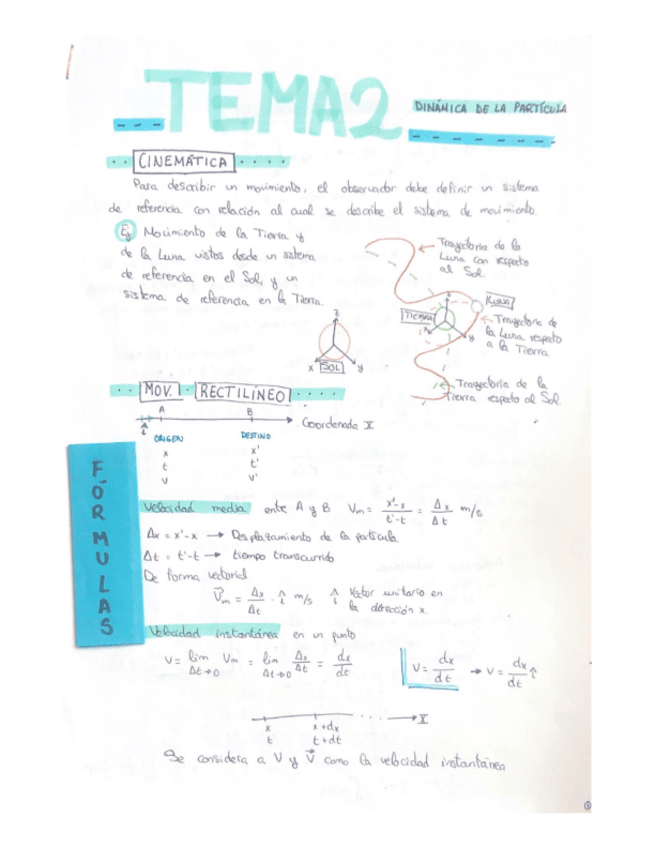 TEMA2
DINÁMICA DE LA PARTÍCULA
CINEMÁTICA
Para describir un movimiento, el observador debe definir un sistema
de referencia con relación al cual se describe el sistema de movimiento.
Ej Movimiento de la Tierra y
de la Luna vistos desde un sistema
de referencia en el Sol, y un
sistema de referencia en la Tierra.
Trayectoria de la
Luna con respecto
al Sol
LUNA
TIERRA
Trayectoria de
la Luna respecto
a la Tierra
z
x
y
SOL
z
x
y
Trayectoria de la
Tierra respecto al Sol
MOV. RECTILÍNEO
A
B
Coordenada X
î
ORIGEN
DESTINO
x
x'
t
t'
v
v'
FÓRMULAS
Velocidad media entre A y B Vm = x'-x / t'-t = Δx / Δt m/s
Δx = x'-x → Desplazamiento de la partícula
Δt = t'-t → tiempo transcurrido
De forma vectorial
V⃗m = Δx / Δt · î m/s
î Vector unitario en
la dirección x.
Velocidad instantánea en un punto
V = lim Δt→0 Vm = lim Δt→0 Δx / Δt = dx / dt
V = dx / dt → V = dx / dt î
x
x+dx
X
t
t+dt
Se considera a V y V⃗ como la velocidad instantánea